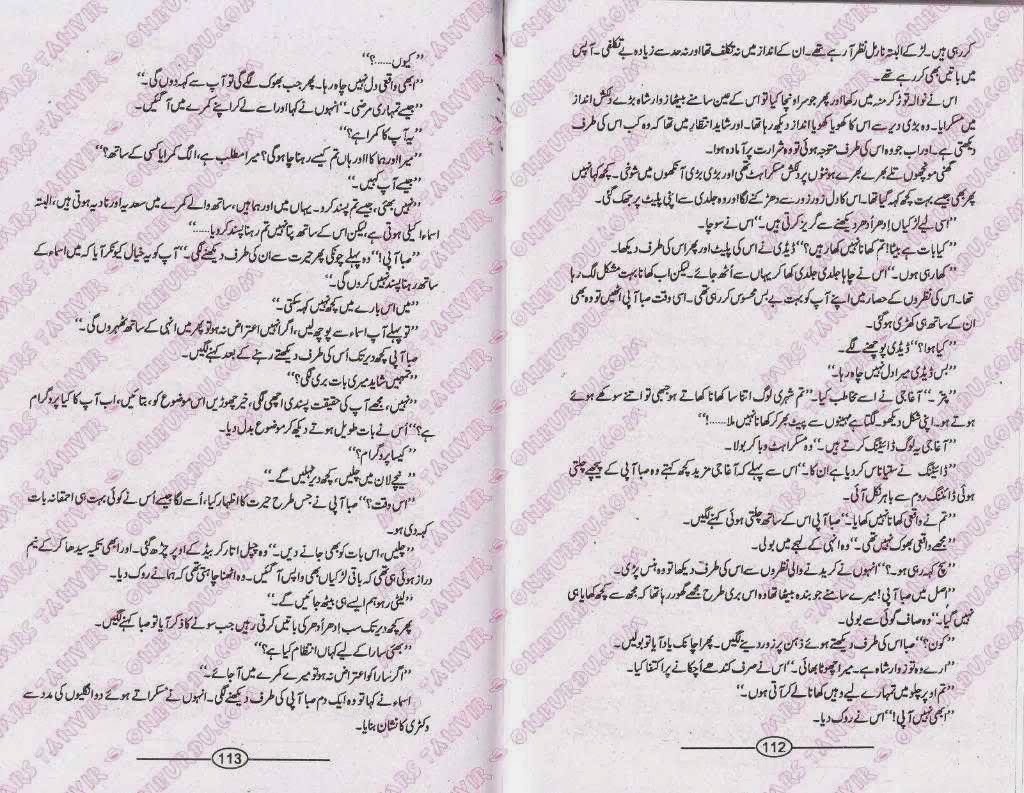 کر رہی ہیں۔ لڑکے البتہ نارمل نظر آ رہے تھے۔ ان کے انداز میں نہ تکلف تھا اور نہ حد سے زیادہ بے تکلفی۔ آپس
میں باتیں بھی کر رہے تھے۔
اس نے نوالہ توڑ کر منہ میں رکھا اور پھر جو سر اونچا کیا تو اس کے عین سامنے بیٹھا زوار شاہ بڑے دلکش انداز
میں مسکرایا۔ وہ بڑی دیر سے اس کا کھویا کھویا انداز دیکھ رہا تھا۔ اور شاید انتظار میں تھا کہ وہ کب اس کی طرف
دیکھتی ہے۔ اور اب جو وہ اس کی طرف متوجہ ہوئی تو وہ شرارت پر آمادہ ہوا۔
گھنی مونچھوں تلے بھرے بھرے ہونٹوں پر دلکش مسکراہٹ تھی اور بڑی بڑی آنکھوں میں شوخی۔ کچھ کہا نہیں
پھر بھی جیسے بہت کچھ کہہ گیا تھا۔ اس کا دل زور زور سے دھڑکنے لگا اور وہ جلدی سے اپنی پلیٹ پر جھک گئی۔
”اسی لیے لڑکیاں اِدھر اُدھر دیکھنے سے گریز کرتی ہیں۔“ اس نے سوچا۔
”کیا بات ہے بیٹا! تم کھانا نہیں کھا رہیں؟“ ڈیڈی نے اس کی پلیٹ اور پھر اس کی طرف دیکھا۔
”کھا رہی ہوں۔“ اس نے چاہا جلدی جلدی کھا کر یہاں سے اُٹھ جائے۔ لیکن اب کھانا بہت مشکل لگ رہا
تھا۔ اس کی نظروں کے حصار میں اپنے آپ کو بہت بے بس محسوس کر رہی تھی۔ اسی وقت صبا آپی اٹھیں تو وہ بھی
ان کے ساتھ ہی کھڑی ہو گئی۔
”کیا ہوا؟“ ڈیڈی پوچھنے لگے۔
”بس ڈیڈی میرا دل نہیں چاہ رہا۔“
”پتر۔“ آغا جی نے اسے مخاطب کیا۔ ”تم شہری لوگ اتنا سا کھانا کھاتے ہو جبھی تو اتنے سوکھے ہوئے
ہوتے ہو۔ اپنی شکل دیکھو۔ لگتا ہے مہینوں سے پیٹ بھر کر کھانا نہیں ملا......!“
”آغا جی یہ لوگ ڈائیٹنگ کرتے ہیں۔“ وہ مسکراہٹ دبا کر بولا۔
”ڈائیٹنگ نے ستیاناس کر دیا ہے ان کا۔“ اس سے پہلے کہ آغا جی مزید کچھ کہتے وہ صبا آپی کے پیچھے چلتی
ہوئی ڈائننگ روم سے باہر نکل آئی۔
”تم نے واقعی کھانا نہیں کھایا۔“ صبا آپی اس کے ساتھ چلتی ہوئی کہنے لگیں۔
”مجھے واقعی بھوک نہیں تھی۔“ وہ انہی کے لہجے میں بولی۔
”سچ کہہ رہی ہو۔؟“ انہوں نے کریدنے والی نظروں سے اس کی طرف دیکھا تو وہ ہنس پڑی۔
”اصل میں صبا آپی! میرے سامنے جو بندہ بیٹھا تھا وہ اس بری طرح مجھے گھور رہا تھا کہ مجھ سے کچھ کھایا ہی
نہیں گیا۔“ وہ صاف گوئی سے بولی۔
”کون؟“ صبا اس کی طرف دیکھتے ہوئے ذہن پر زور دینے لگیں۔ پھر اچانک یاد آیا تو بولیں۔
”ارے وہ تو زوار شاہ ہے۔ میرا چھوٹا بھائی۔“ اس نے صرف کندھے اُچکانے پر اکتفا کیا۔
”تم اوپر چلو میں تمہارے لیے وہیں کھانا لے کر آتی ہوں۔“
”ابھی نہیں آپی!“ اس نے روک دیا۔
112
”کیوں......؟“
”ابھی واقعی دل نہیں چاہ رہا۔ پھر جب بھوک لگے گی تو آپ سے کہہ دوں گی۔“
”جیسے تمہاری مرضی۔“ انہوں نے کہا اور اسے لے کر اپنے کمرے میں آ گئیں۔
”یہ آپ کا کمرا ہے؟“
”میرا اور ہما کا اور ہاں تم کیسے رہنا چاہو گی؟ میرا مطلب ہے، الگ کمرا یا کسی کے ساتھ؟“
”جیسے آپ کہیں۔“
”نہیں بھئی، جیسے تم پسند کرو۔ یہاں میں اور ہما ہیں، ساتھ والے کمرے میں سعدیہ اور نادیہ ہوتی ہیں، البتہ
اسماء اکیلی ہوتی ہے، لیکن اس کے ساتھ پتا نہیں تم رہنا پسند کرو یا......“
”صبا آپی!“ وہ پہلے چونکی پھر حیرت سے ان کی طرف دیکھنے لگی۔ ”آپ کو یہ خیال کیونکر آیا کہ میں اسماء کے
ساتھ رہنا پسند نہیں کروں گی۔“
”میں اس بارے میں کچھ نہیں کہہ سکتی۔“
”تو پہلے آپ اسماء سے پوچھ لیں، اگر انہیں اعتراض نہ ہو تو پھر میں انہی کے ساتھ ٹھہروں گی۔“
صبا آپی کچھ دیر تک اُس کی طرف دیکھتے رہنے کے بعد کہنے لگیں۔
”تمہیں شاید میری بات بری لگی؟“
”نہیں، مجھے آپ کی حقیقت پسندی اچھی لگی، خیر چھوڑیں اس موضوع کو، بتائیں، اب آپ کا کیا پروگرام
ہے؟“ اُس نے بات طویل ہوتے دیکھ کر موضوع بدل دیا۔
”کیسا پروگرام؟“
”نیچے لان میں چلیں، کچھ دیر ٹہلیں گے۔“
”اس وقت؟“ صبا آپی نے جس طرح حیرت کا اظہار کیا، اُسے لگا جیسے اُس نے کوئی بہت ہی احمقانہ بات
کہہ دی ہو۔
”چلیں، اس بات کو بھی جانے دیں۔“ وہ چپل اتار کر بیڈ کے اوپر چڑھ گئی۔ اور ابھی تکیہ سیدھا کر کے نیم
دراز ہوئی ہی تھی کہ باقی لڑکیاں بھی واپس آ گئیں۔ وہ اٹھنا چاہتی تھی کہ ہما نے روک دیا۔
”لیٹی رہو ہم ایسے ہی بیٹھ جائیں گے۔“
پھر کچھ دیر تک سب اِدھر اُدھر کی باتیں کرتی رہیں جب سونے کا ذکر آیا تو صبا کہنے لگیں۔
”بھئی سارا کے لیے کہاں انتظام کیا ہے؟“
”اگر سارا کو اعتراض نہ ہو تو میرے کمرے میں آ جائے۔“
اسماء نے کہا تو وہ ایک دم صبا آپی کی طرف دیکھنے لگی۔ انہوں نے مسکراتے ہوئے دو انگلیوں کی مدد سے
وکٹری کا نشان بنایا۔
113